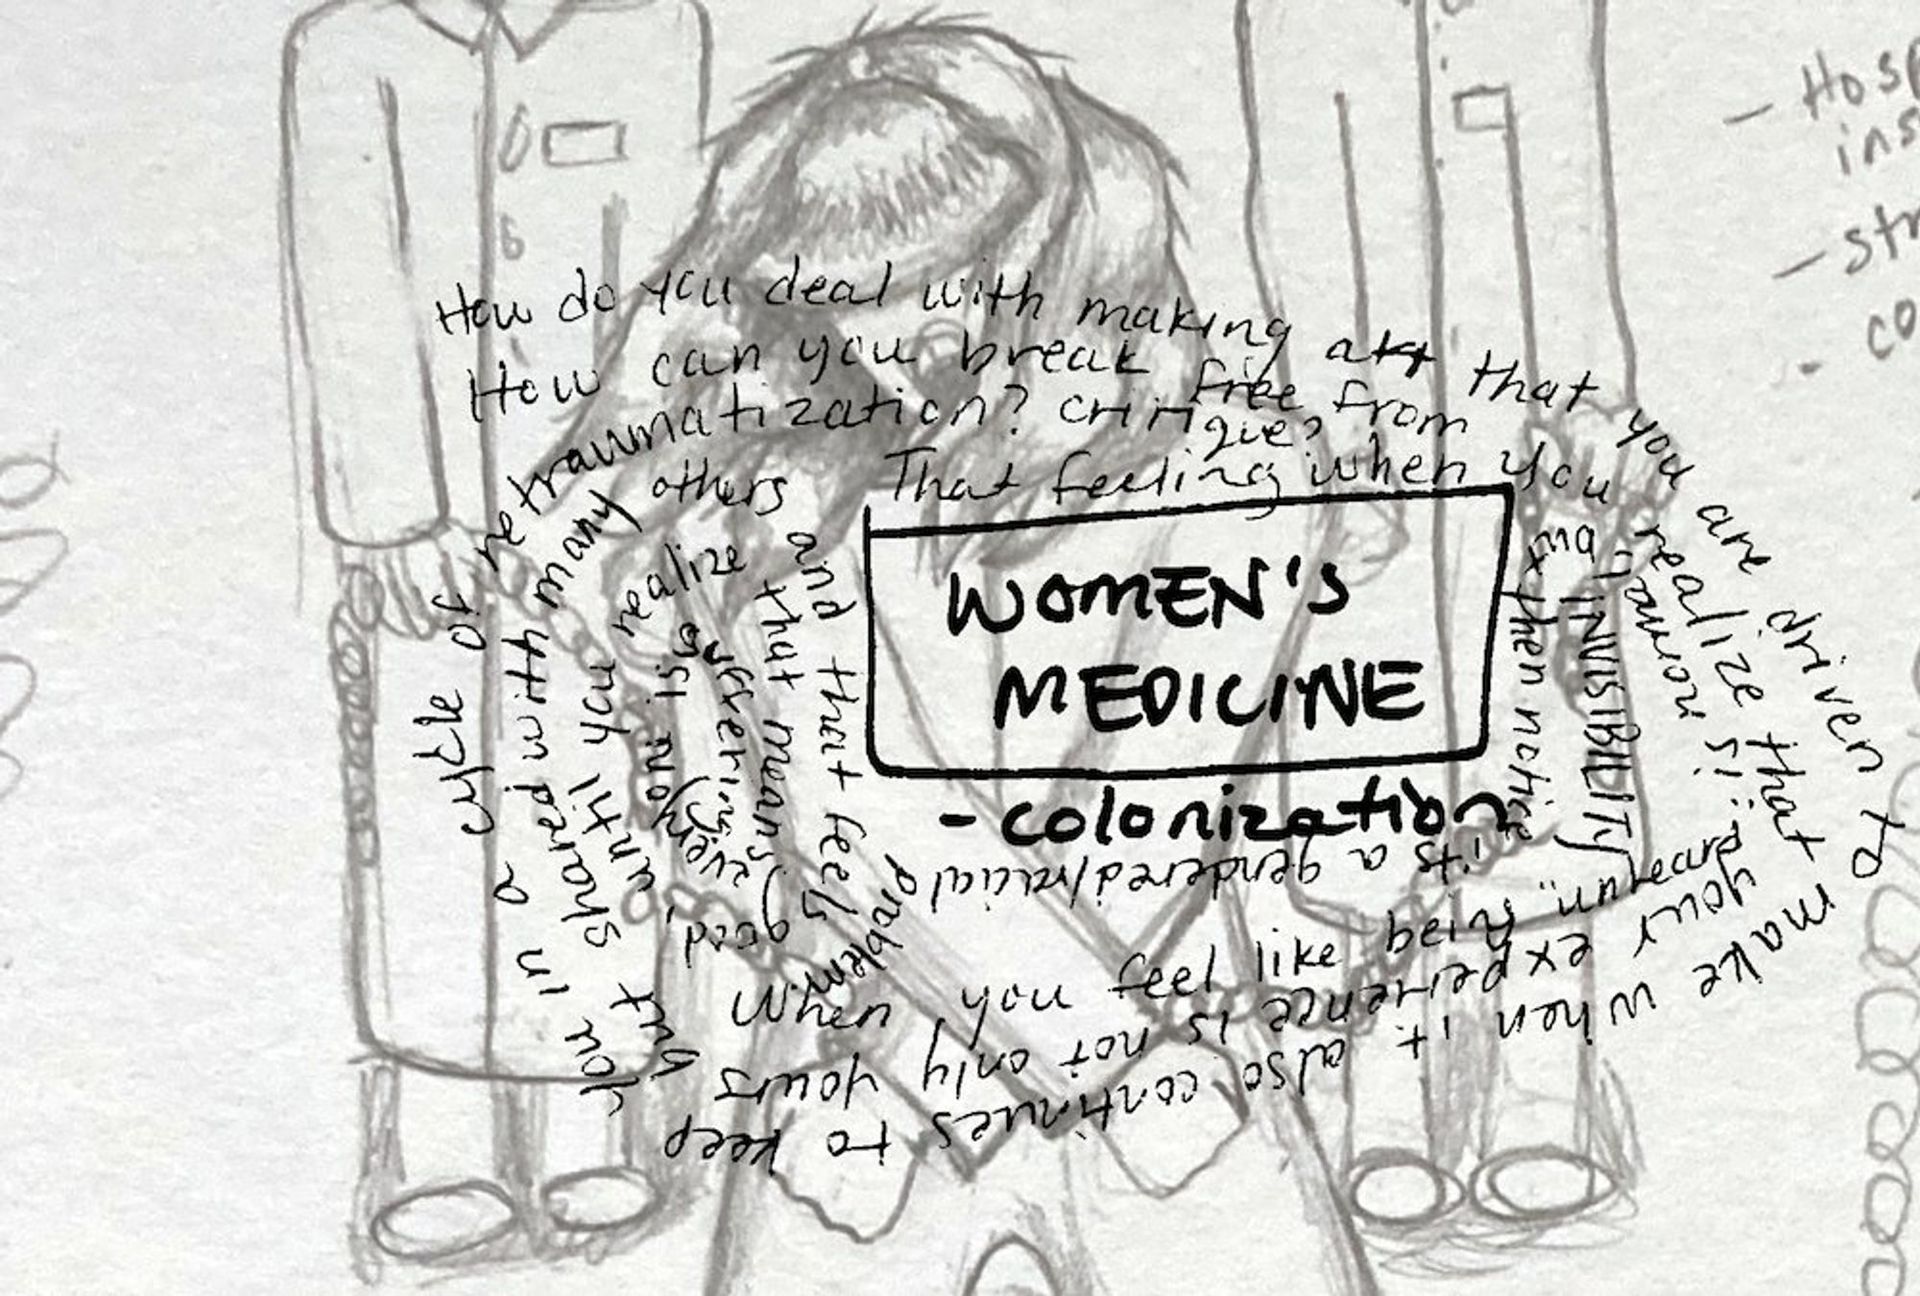 How do you deal with making art that you are driven to
make when it also continues to keep
you in a cycle of retraumatization?
How can you break free from
critique?
That feeling when you realize that
your experience is not only yours
but shared with many others and that feels good,
until you realize that means
suffering
When you feel like being "unheard"
is "normal" but then notice
its a gendered/racial
problem
INVISIBILITY
WOMEN'S
MEDICINE
- colonization
- Hosp
ins
- str
- co